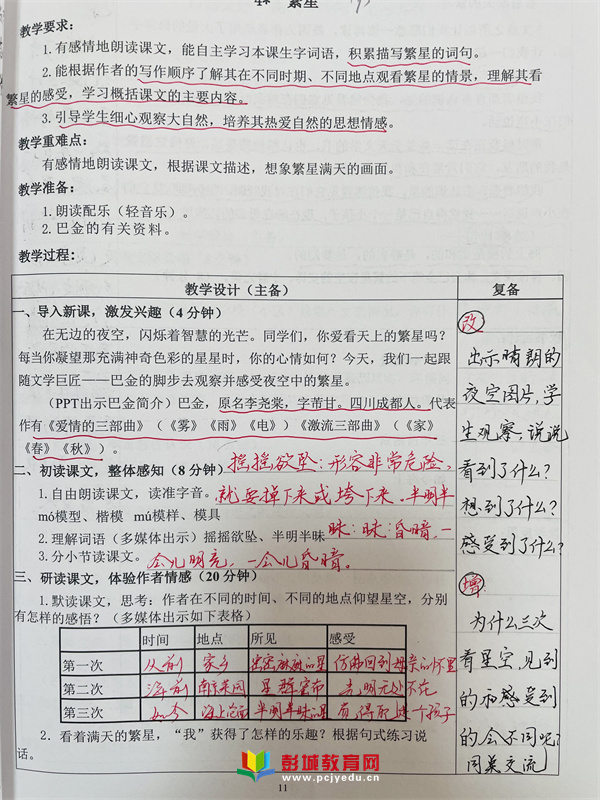 4* 繁星
教学要求：
1.有感情地朗读课文，能自主学习本课生字词语，积累描写繁星的词句。
2.能根据作者的写作顺序了解其在不同时期、不同地点观看繁星的情景，理解其看
繁星的感受，学习概括课文的主要内容。
3.引导学生细心观察大自然，培养其热爱自然的思想情感。
教学重难点：
有感情地朗读课文，根据课文描述，想象繁星满天的画面。
教学准备：
1.朗读配乐（轻音乐）。
2.巴金的有关资料。
教学过程：
教学设计（主备）
一、导入新课，激发兴趣（4 分钟）
在无边的夜空，闪烁着智慧的光芒。同学们，你爱看天上的繁星吗？
每当你凝望那充满神奇色彩的星星时，你的心情如何？今天，我们一起跟
随文学巨匠——巴金的脚步去观察并感受夜空中的繁星。
（PPT出示巴金简介）巴金，原名李尧棠，字芾甘。四川成都人。代表
作有《爱情的三部曲》（《雾》《雨》《电》）《激流三部曲》（《家》
《春》《秋》）。
二、初读课文，整体感知（8 分钟）
摇摇欲坠：形容非常危险，
1.自由朗读课文，读准字音。
就要掉下来或垮下来。半明半
mó模型、楷模 mú模样、模具
2.理解词语（多媒体出示）摇摇欲坠、半明半昧
昧：昧：昏暗，一
3.分小节读课文。
会儿明亮，一会儿昏暗。
三、研读课文，体验作者情感（20 分钟）
1.默读课文，思考：作者在不同的时间、不同的地点仰望星空，分别
有怎样的感悟？（多媒体出示如下表格）
时间 地点 所见 感受
第一次 从前 家乡 密密麻麻的星 仿佛回到母亲的怀里
第二次 南京菜园 星群密布 光明无处不在
第三次 如今 海上 半明半昧的星
2．看着满天的繁星，“我”获得了怎样的乐趣？根据句式练习说
话。
复备
改
出示晴朗的
夜空图片，学
生观察，说说
看到了什么？
想到了什么？
感受到了什么？
增
为什么三次
看星空，见到
的和感受到
的会不同呢？
同桌交流
彭城教育网
www.pcjyedu.cn
11